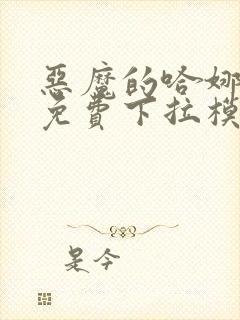 惡魔的哈娜
免費下拉模
是今